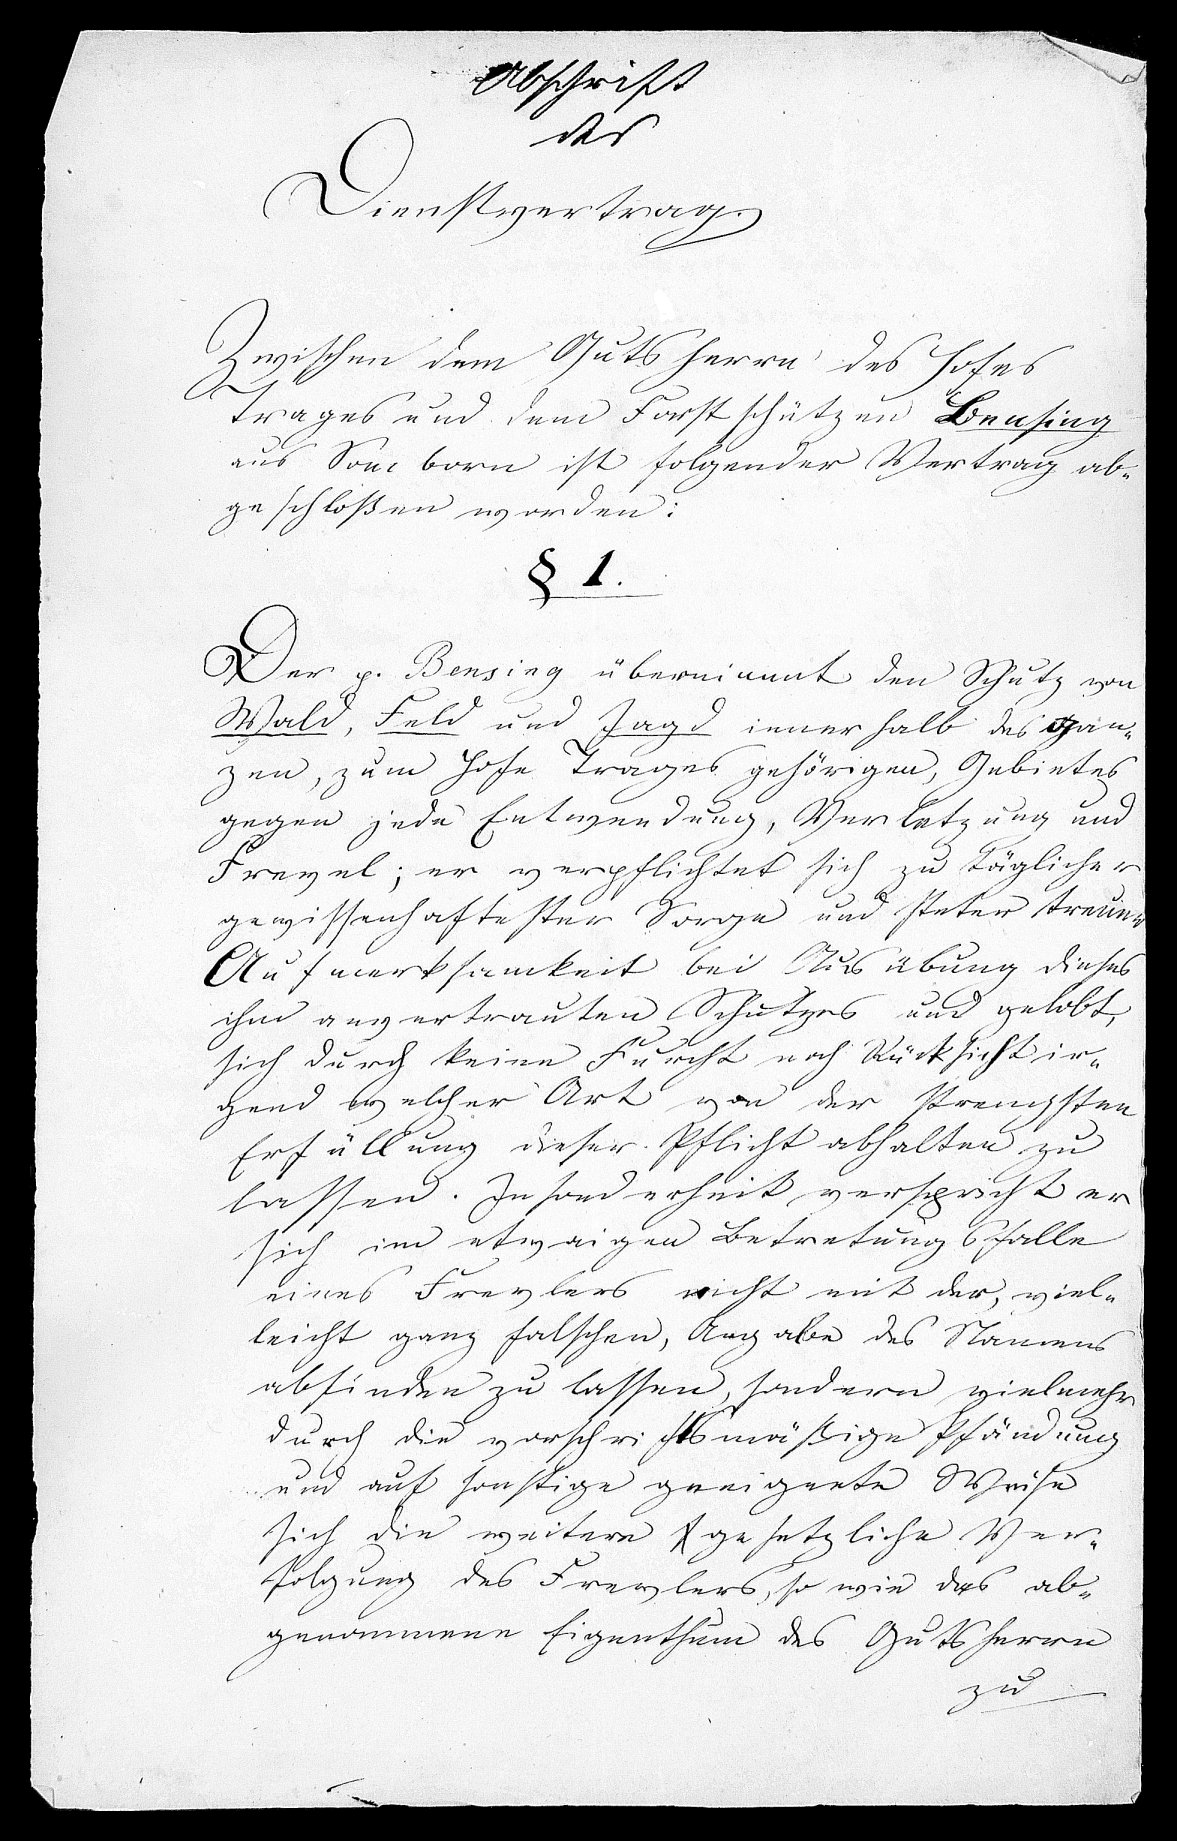 Abschrift
des
Dienstvertrag.
Zwischen dem Gutsherrn des Hofes
Trages und dem Forstschützen Bensing
aus Somborn ist folgender Vertrag ab-
geschloßen worden:
§ 1.
Der p. Bensing übernimmt den Schutz von
Wald, Feld und Jagd innerhalb des gan-
zen, zum Hofe Trages gehörigen, Gebietes
gegen jede Entwendung, Verletzung und
Frevel; er verpflichtet sich zu täglicher
gewissenhaftester Sorge und steter treuer
Aufmerksamkeit bei Ausübung dieses
ihm anvertrauten Schutzes und gelobt,
sich durch keine Furcht noch Rücksicht ir-
gend welcher Art von der strengsten
Erfüllung dieser Pflicht abhalten zu
lassen. Insonderheit verspricht er
sich im etwaigen Betretungsfalle
eines Frevlers nicht mit der, viel-
leicht ganz falschen, Angabe des Namens
abfinden zu lassen, sondern vielmehr
durch die vorschriftsmäßige Pfändung
und auf sonstige geeignete Weise
sich die weitere gesetzliche Ver-
folgung des Frevlers, so wie das ab-
genommene Eigenthum des Gutsherrn
zu